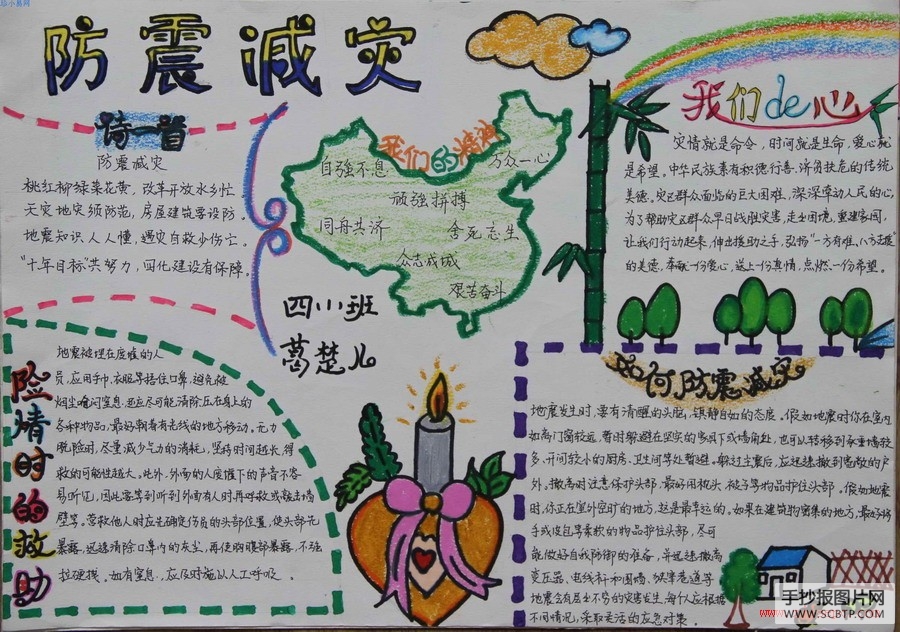 防震减灾
诗一首
防震减灾
桃红柳绿菜花黄，改革开放水乡忙
天灾地灾须防范，房屋建筑要设防。
地震知识人人懂，遇灾自救少伤亡。
“十年目标”共努力，四化建设有保障。
我们的精神
自强不息
万众一心
顽强拼搏
同舟共济
舍死忘生
众志成城
艰苦奋斗
四(1)班
葛楚儿
我们de心
灾情就是命令，时间就是生命，爱心就
是希望。中华民族素有积德行善、济贫扶危的传统
美德。灾区群众面临的巨大困难，深深牵动人民的心，
为了帮助灾区群众早日战胜灾害，走出困境，重建家园，
让我们行动起来，伸出援助之手，弘扬“一方有难、八方支援”
的美德，奉献一份爱心，送上一份真情，点燃一份希望。
险情时的救助
地震被埋在废墟的人
员，应用手巾、衣服等捂住口鼻，避免被
烟尘呛闷窒息，还应尽可能清除压在身上的
各种物品，最好朝着有光线的地方移动。无力
脱险时，尽量减少气力的消耗，坚持时间越长，得
救的可能性越大。此外，外面的人废墟下的声音不容
易听见，因此需等到听到外面有人时再呼救或敲击墙
壁等。营救他人时应先确定伤员的头部位置，使头部先
暴露，迅速清除口鼻内的灰尘，再使胸腹部暴露，不强
拉硬拽。如有窒息，应及时施以人工呼吸。
如何防震减灾
地震发生时，要有清醒的头脑，镇静自如的态度。假如地震时你在室内
如离门窗较远，暂时躲避在坚实的家具下或墙角处，也可以转移到承重墙较
多、开间较小的厨房、卫生间等处暂避。躲过主震后，应迅速撤到宽敞的户
外，撤离时注意保护头部，最好用枕头、被子等物品护住头部。假如地震
时，你正在室外空旷的地方，这是最幸运的。如果在建筑物密集的地方，最好将
手或皮包等柔软的物品护住头部，尽可
能做好自我防御的准备，并迅速撤离
变压器、电线杆和围墙、狭窄巷道等
地震会有层出不穷的灾害发生，每个人应根据
不同情况，采取灵活的应急对策。
手抄报图片网
WWW.SCBTP.COM